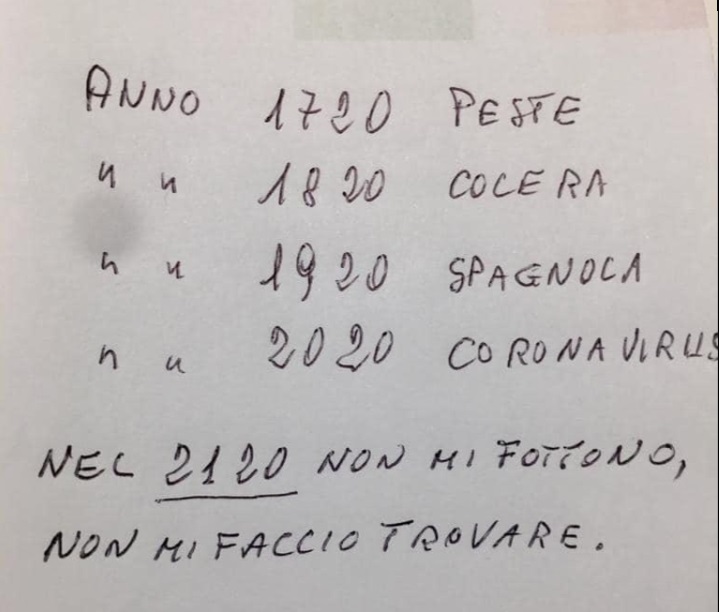 ANNO 1720 PESTE
" " 1820 COLERA
" " 1920 SPAGNOLA
" " 2020 CORONAVIRUS
NEL 2120 NON MI FOTTONO,
NON MI FACCIO TROVARE.